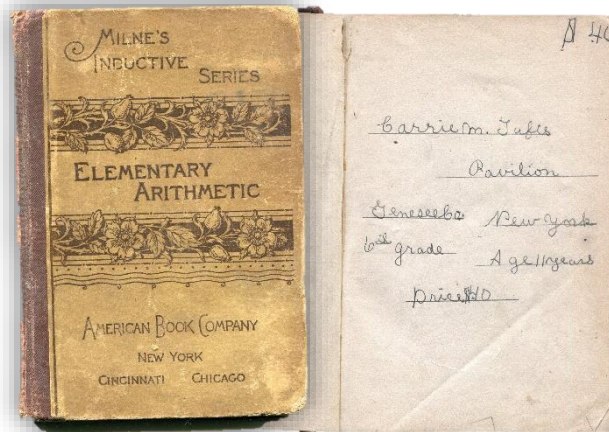 MILNE'S
INDUCTIVE
SERIES
ELEMENTARY
ARITHMETIC
AMERICAN BOOK COMPANY
NEW YORK
CINCINNATI CHICAGO
$ 40
Carrie M. Tufts
Pavilion
Genesee Co New York
6th grade Age 11 years
Price $40